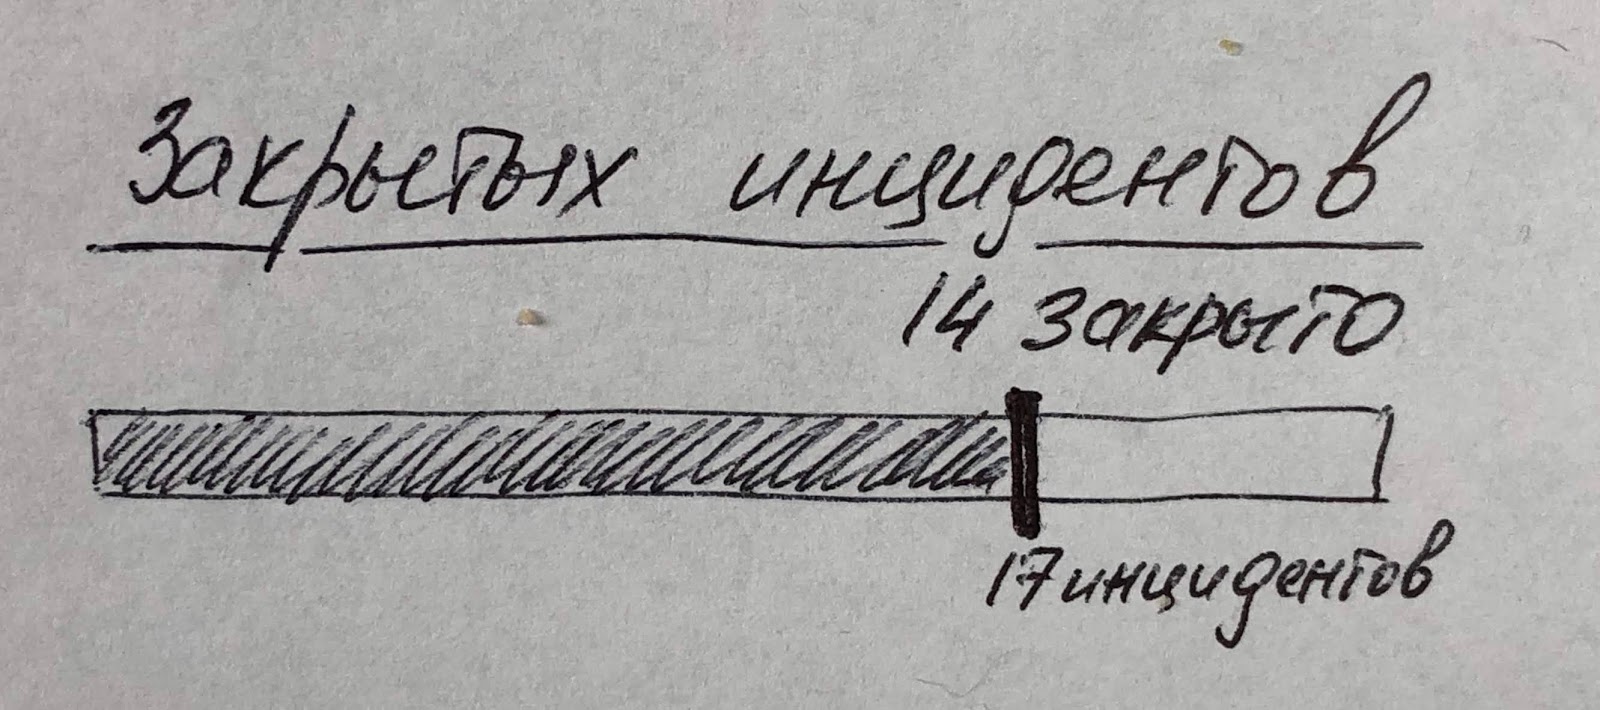 Закрытых инцидентов
14 закрыто
17 инцидентов